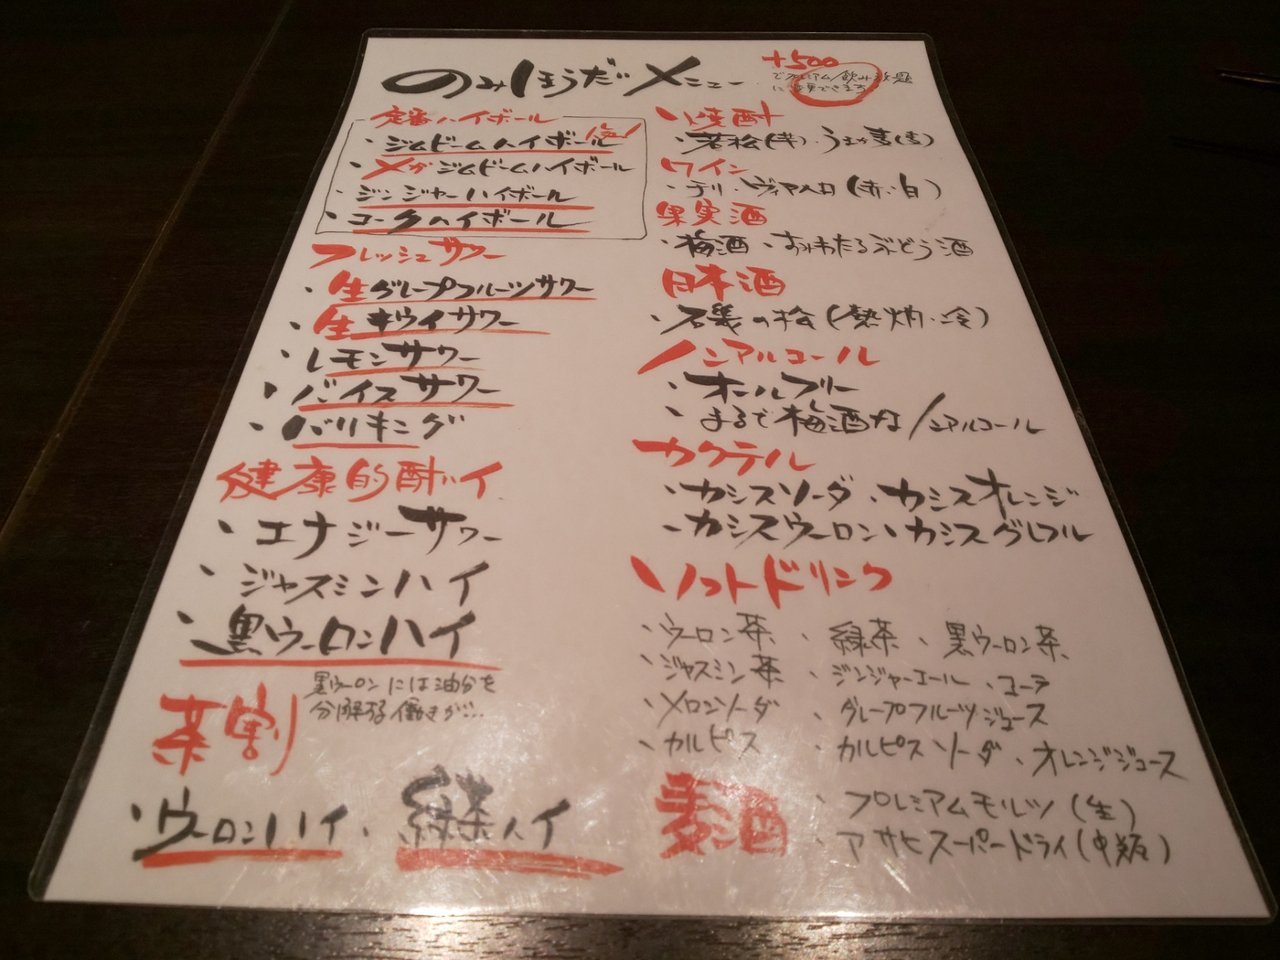 のみほうだいメニュー
+500
でプレミアム飲み放題
に変更できます
定番ハイボール
・ジムビームハイボール
・メガジムビームハイボール
・ジンジャーハイボール
・コークハイボール
フレッシュサワー
・生グレープフルーツサワー
・生キウイサワー
・レモンサワー
・バイスサワー
・バリキング
健康的酎ハイ
・エナジーサワー
・ジャスミンハイ
・黒ウーロンハイ
黒ウーロンには油分を
分解する働きが…
茶割
・ウーロンハイ、緑茶ハイ
焼酎
・若松(芋)・うまか麦(麦)
ワイン
・チリ・ヴィアハロ(赤・白)
果実酒
・梅酒・おみわたるぶどう酒
日本酒
・磯の松(熱燗・冷)
ノンアルコール
・オールフリー
・まるで梅酒なノンアルコール
カクテル
・カシスソーダ・カシスオレンジ
・カシスウーロン・カシスグレフル
ソフトドリンク
・ウーロン茶・緑茶・黒ウーロン茶
・ジャスミン茶・ジンジャーエール・コーラ
・メロンソーダ・グレープフルーツジュース
・カルピス・カルピスソーダ・オレンジジュース
麦酒
・プレミアムモルツ(生)
・アサヒスーパードライ(中瓶)